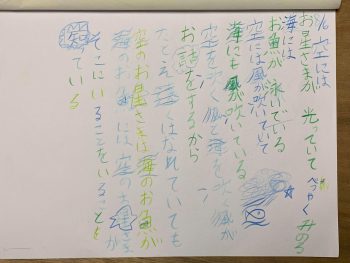 空には
お星さまが 光っていて
べつやく みのる
海には
お魚が 泳いでいる
空には風が吹いていて
海にも風が吹いている
空を吹く風と海を吹く風が
お話をするから
たとえ遠くはなれていても
空のお星さまは海のお魚が
海のお魚には空のお星さまが
そこにいることをいることを
ている